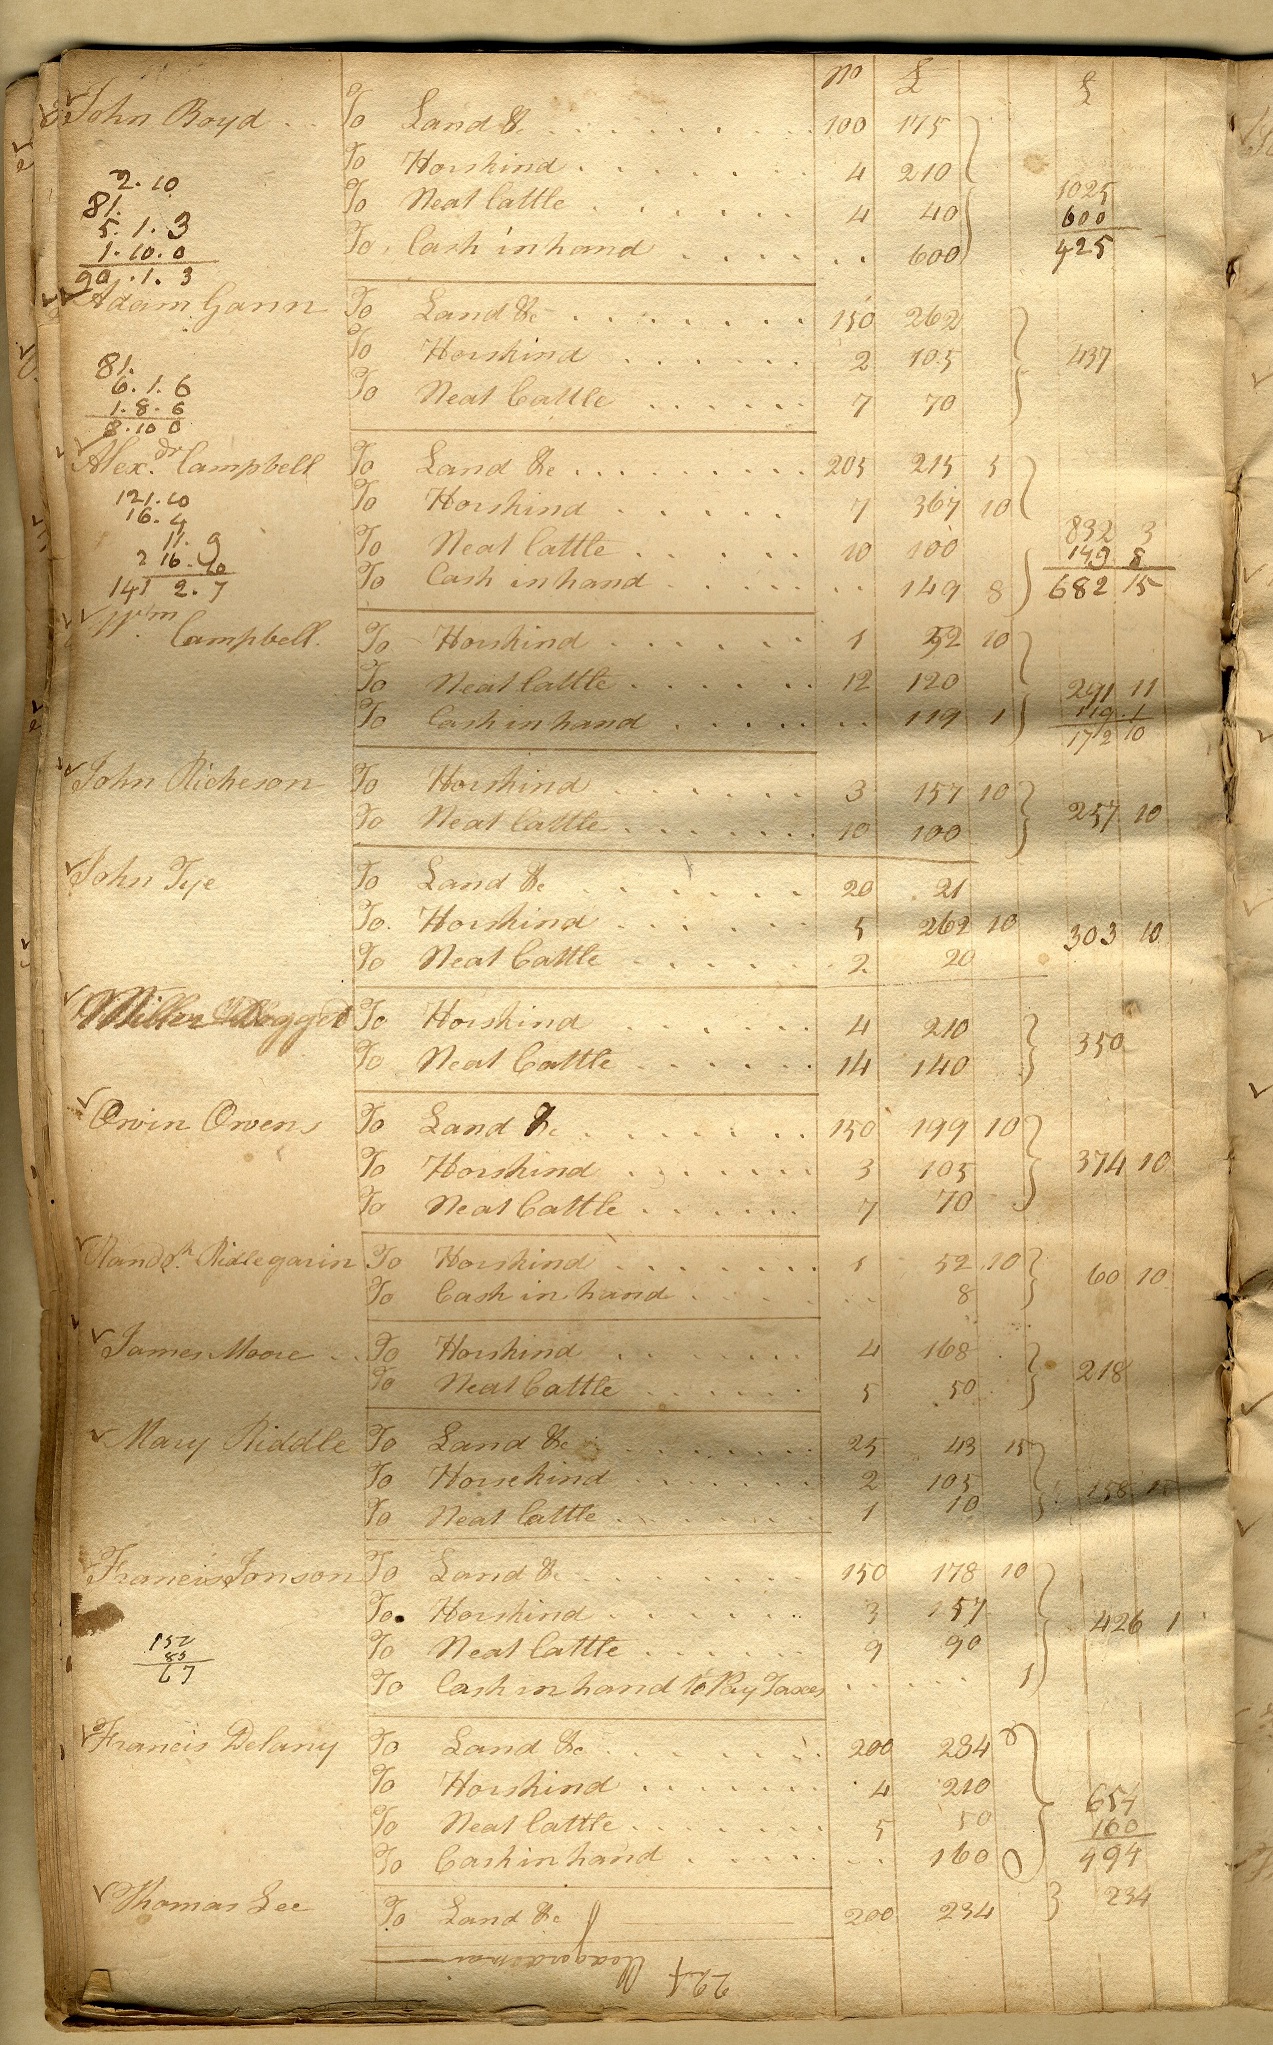 No £ £
John Boyd . . To Land &c . . . . . . . . 100 175
To Horskind . . . . . . . 4 210
2.10 To Neat Cattle . . . . . . 4 40 1025
81. 600
5.1.3 To Cash in hand . . . . . . . . 600 425
1.10.0
90.1.3
Adam Gann To Land &c . . . . . . . 150 262
To Horskind . . . . . . 2 105 437
81.
6.1.6 To Neat Cattle . . . . . . 7 70
1.8.6
8.10 0
Alex.dr Campbell To Land &c . . . . . . . . 205 215 5
121.10 To Horskind . . . . . . 7 367 10
16.4
11.9 To Neat Cattle . . . . . 10 100 832 3
2 16.10 149 8
141 2.7 To Cash in hand . . . . . . . . 149 8 682 15
Wm Campbell. To Horskind . . . . . . 1 52 10
To Neat Cattle . . . . . . 12 120 291 11
To Cash in hand . . . . . . . . 119 1 119.1
172 10
John Richeson To Horskind . . . . . . 3 157 10
To Neat Cattle . . . . . . . 10 100 257 10
John Tye To Land &c . . . . . . . 20 21
To Horskind . . . . . . 5 262 10 303 10
To Neat Cattle . . . . . . 2 20
Miller Doggett To Horskind . . . . . . 4 210
To Neat Cattle . . . . . . 14 140 350
Owin Owens To Land &c . . . . . . . 150 199 10
To Horskind . . . . . . 3 105 374 10
To Neat Cattle . . . . . . 7 70
Randph Ridlegarin To Horskind . . . . . . . 1 52 10
To Cash in hand . . . . . . . 8 60 10
James Moore . . To Horskind . . . . . . 4 168
To Neat Cattle . . . . . . 5 50 218
Mary Riddle To Land &c . . . . . . . 25 43 15
To Horsekind . . . . . . 2 105 158 15
To Neat Cattle . . . . . . 1 10
Francis Jonson To Land &c . . . . . . . 150 178 10
To Horskind . . . . . . . 3 157 426 1
152 To Neat Cattle . . . . . . 9 90
85
67 To Cash in hand to Pay Taxes . . . . . 1
Francis Delany To Land &c . . . . . . . 200 234
To Horskind . . . . . . 4 210 654
To Neat Cattle . . . . . . . 5 50 160
To Cash in hand . . . . . . . 160 494
Thomas Lee To Land &c 200 234 234
224